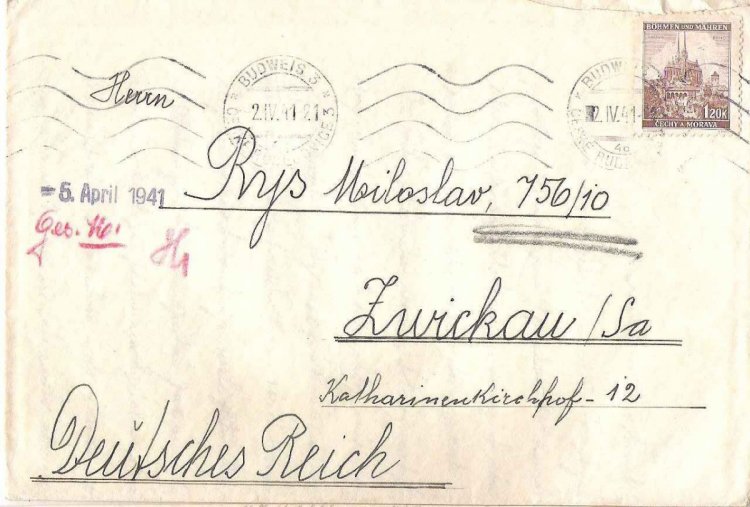 BÖHMEN UND MÄHREN
1.20K
ČECHY A MORAVA
BUDWEIS 3
2.IV.41-21
BUDW
2.IV.41
4a
Herrn
= 5. April 1941
Rys Miloslav, 756/10
Ges.
Zwickau /Sa
Katharinenkirchhof - 12
Deutsches Reich